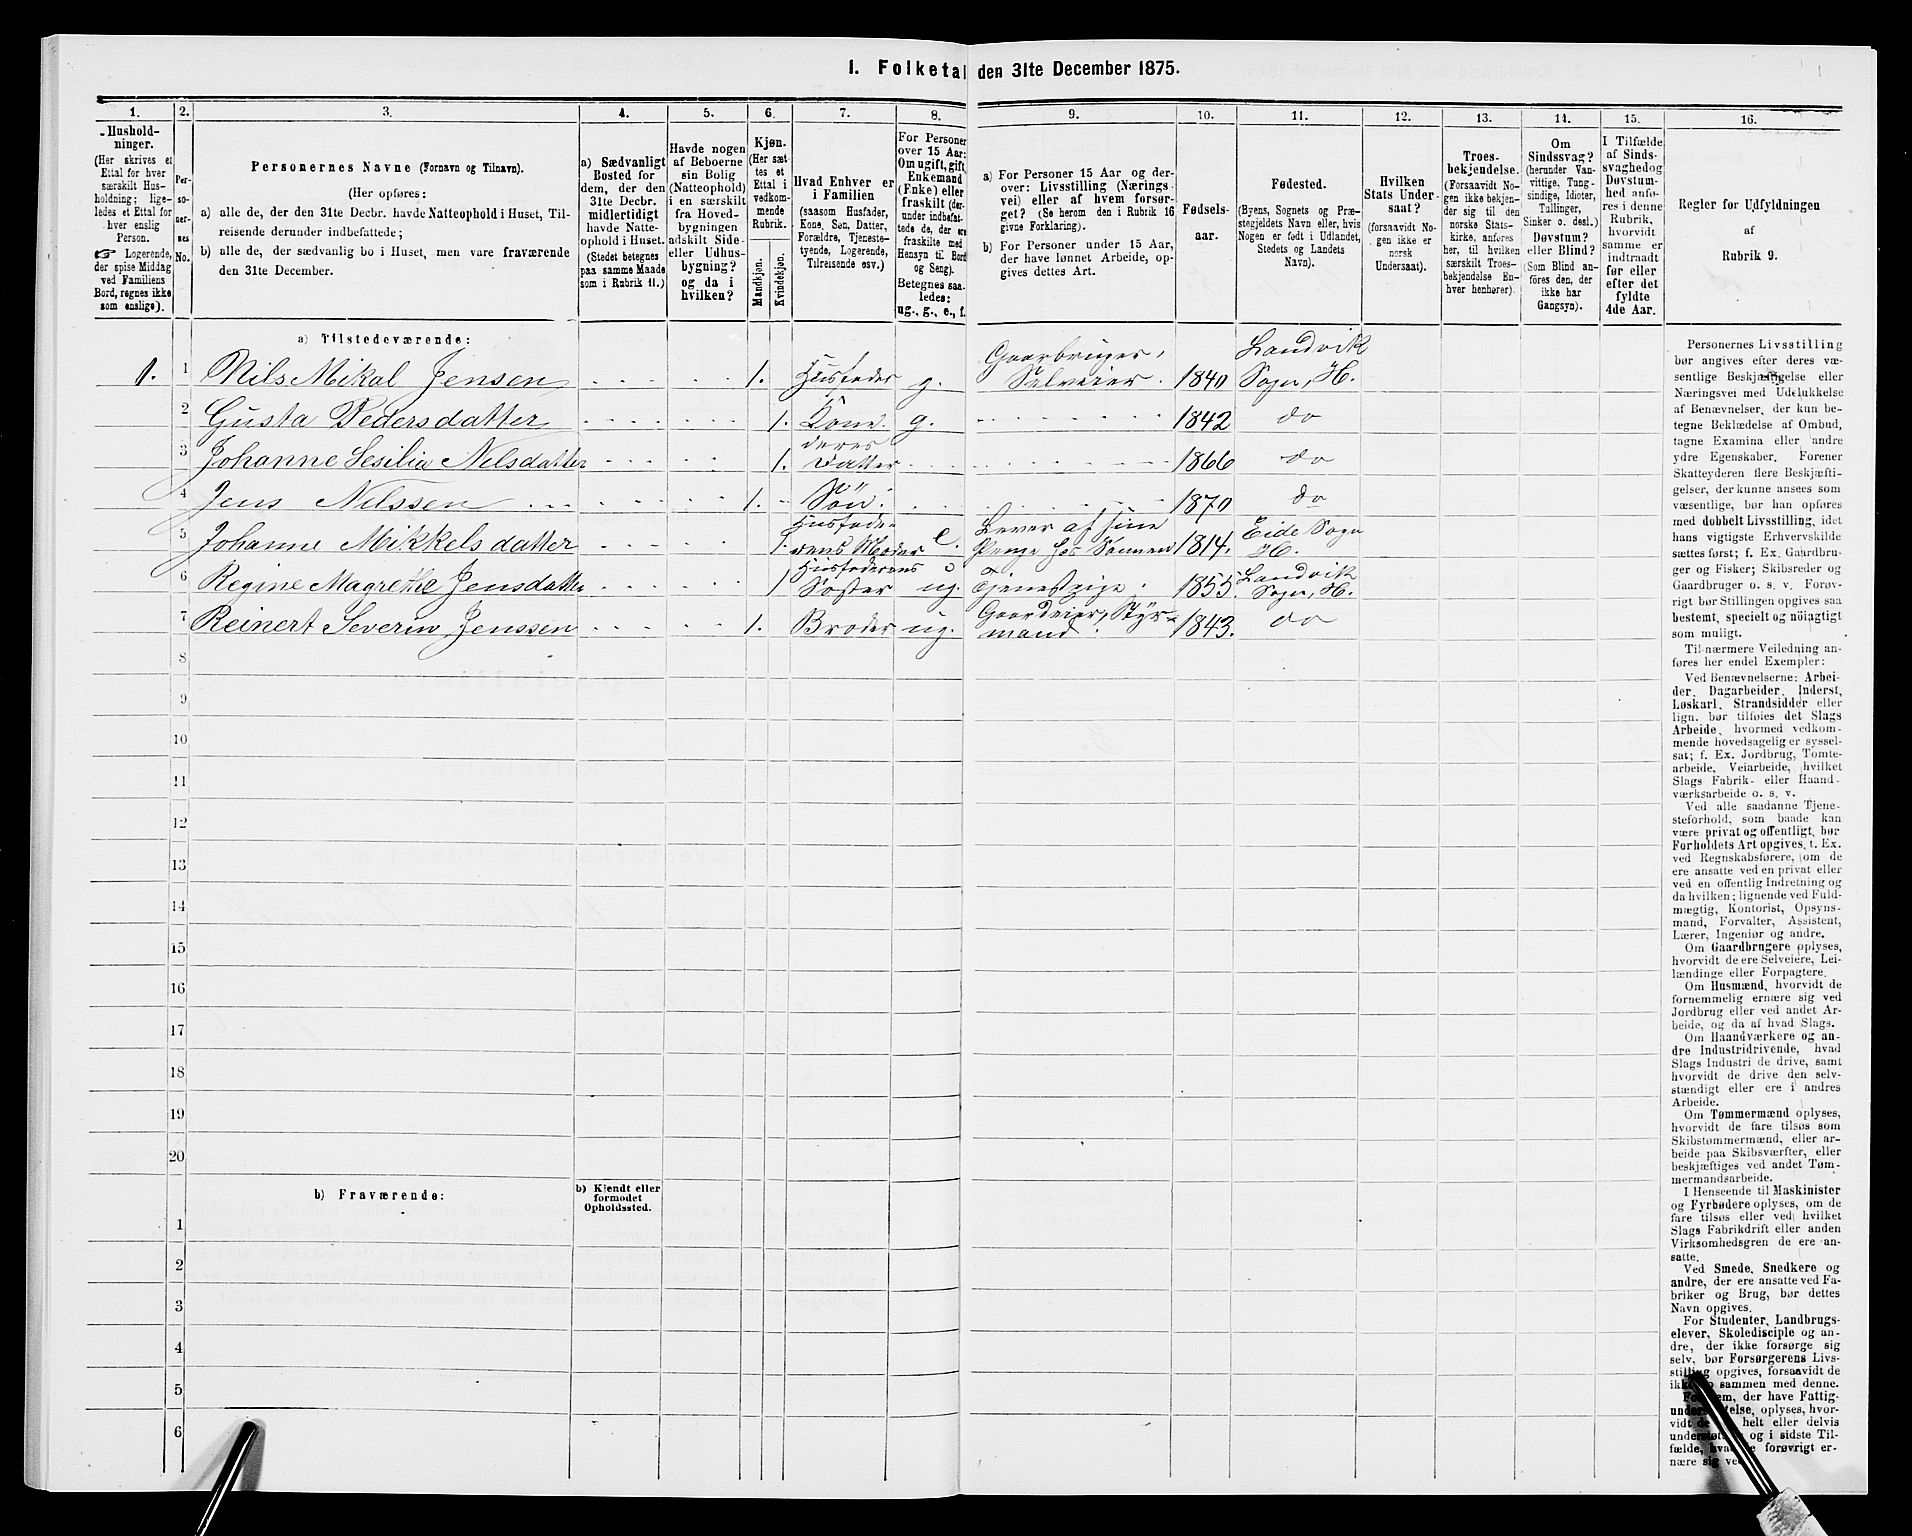 1. Folketal den 31te December 1875.
1.
2.
3.
4.
5.
6.
7.
8.
9.
10.
11.
12.
13.
14.
15.
16.
Hushold-
ninger.
(Her skrives et
Ettal for hver
særskilt Hus-
holdning; lige-
ledes et Ettal for
hver enslig
Person.
☞ Logerende,
der spise Middag
ved Familiens
Bord, regnes ikke
som enslige).
Per-
so-
ner-
nes
No.
Personernes Navne (Fornavn og Tilnavn).
(Her opføres:
a) alle de, der den 31te Decbr. havde Natteophold i Huset, Til-
reisende derunder indbefattede;
b) alle de, der sædvanlig bo i Huset, men vare fraværende
den 31te December.
a) Sædvanligt
Bosted for
dem, der den
31te Decbr.
midlertidigt
havde Natte-
ophold i Huset.
(Stedet betegnes
paa samme Maade
som i Rubrik 11.)
Havde nogen
af Beboerne
sin Bolig
(Natteophold)
i en særskilt
fra Hoved-
bygningen
adskilt Side-
eller Udhus-
bygning?
og da i
hvilken?
Kjøn.
(Her sæt-
tes et
Ettal i
vedkom-
mende
Rubrik.
Mandkjøn.
Kvindekjøn.
Hvad Enhver er
i Familien
(saasom Husfader,
Kone, Søn, Datter,
Forældre, Tjeneste-
tyende, Logerende,
Tilreisende osv.)
For Personer
over 15 Aar:
Om ugift, gift,
Enkemand
(Enke) eller
fraskilt (der-
under indbefat-
tede de, der ere
fraskilte med
Hensyn til Bord
og Seng).
Betegnes saa-
ledes:
ug., g., e., f.
a) For Personer 15 Aar og der-
over: Livsstilling (Nærings-
vei) eller af hvem forsør-
get? (Se herom den i Rubrik 16
givne Forklaring).
b) For Personer under 15 Aar,
der have lønnet Arbeide, op-
gives dettes Art.
Fødsels-
aar.
Fødested.
(Byens, Sognets og Præ-
stegjeldets Navn eller, hvis
Nogen er født i Udlandet,
Stedets og Landets
Navn).
Hvilken
Stats Under-
saat?
(forsaavidt No-
gen ikke er
norsk
Undersaat).
Troes-
bekjendelse.
(Forsaavidt No-
gen ikke bekjen-
der sig til den
norske Stats-
kirke, anføres
her, til hvilken
særskilt Troes-
bekjendelse En-
hver henhører).
Om
Sindssvag?
(herunder Van-
vittige, Tung-
sindige, Idioter,
Tullinger,
Sinker o. desl.)
Døvstum?
eller Blind?
(Som Blind an-
føres den, der
ikke har
Gangsyn).
I Tilfælde
af Sinds-
svaghed og
Døvstum-
hed anfø-
res i denne
Rubrik,
hvorvidt
samme er
indtraadt
før eller
efter det
fyldte
4de Aar.
Regler for Udfyldningen
af
Rubrik 9.
a) Tilstedeværende:
1. 1 Nils Mikal Jensen 1. Husfader g. Gaarbruger, Selveier. 1840 Landvik Sogn, H.
2 Gusta Pedersdatter 1. Kone. g. 1842 do
3 Johanne Sesilia Nilsdatter 1. deres Datter 1866 do
4 Jens Nilssen 1. Søn. 1870 do
5 Johanne Mikkelsdatter 1. Husfaderens Moder e. Lever af sine Penge hos Sønnen 1814. Eide Sogn H.
6 Regine Magrethe Jensdatter 1 Husfaderens Søster ug. Tjenestpige. 1855. Landvik Sogn, H.
7 Reinert Severin Jenssen 1. Broder ug. Gaardeier, Styrmand. 1843. do
8
9
10
11
12
13
14
15
16
17
18
19
20
b) Fraværende:
b) Kjendt eller
formodet
Opholdssted.
1
2
3
4
5
6
Personernes Livsstilling
bør angives efter deres væ-
sentlige Beskjæftigelse eller
Næringsvei med Udelukkelse
af Benævnelser, der kun be-
tegne Beklædelse af Ombud,
tagne Examina eller andre
ydre Egenskaber. Forener
Skatteyderen flere Beskjæfti-
gelser, der kunne ansees som
væsentlige, bør han opføres
med dobbelt Livsstilling, idet
hans vigtigste Erhvervskilde
sættes først; f. Ex. Gaardbru-
ger og Fisker; Skibsreder og
Gaardbruger o. s. v. Forøv-
rigt bør Stillingen opgives saa
bestemt, specielt og nöiagtigt
som muligt.
Til nærmere Veiledning an-
føres her endel Exempler:
Ved Benævnelserne: Arbei-
der, Dagarbeider, Inderst,
Løskarl, Strandsidder eller
lign. bør tilføies det Slags
Arbeide, hvormed vedkom-
mende hovedsagelig er syssel-
sat; f. Ex. Jordbrug, Tomte-
arbeide, Veiarbeide, hvilket
Slags Fabrik- eller Haand-
værksarbeide o. s. v.
Ved alle saadanne Tjene-
steforhold, som baade kan
være privat og offentligt, bør
Forholdets Art opgives, t. Ex.
ved Regnskabsførere, om de
ere ansatte ved en privat eller
ved en offentlig Indretning og
da hvilken; lignende ved Fuld-
mægtig, Kontorist, Opsyns-
mand, Forvalter, Assistent,
Lærer, Ingeniør og andre.
Om Gaardbrugere oplyses,
hvorvidt de ere Selveiere, Lei-
lændinge eller Forpagtere.
Om Husmænd, hvorvidt de
fornemmelig ernære sig ved
Jordbrug eller ved andet Ar-
beide, og da af hvad Slags.
Om Haandværkere og an-
dre Industridrivende, hvad
Slags Industri de drive, samt
hvorvidt de drive den selv-
stændigt eller ere i andres
Arbeide.
Om Tømmermænd oplyses,
hvorvidt de fare tilsøs som
Skibstømmermænd, eller ar-
beide paa Skibsværfter, eller
beskjæftiges ved andet Tøm-
mermandsarbeide.
I Henseende til Maskinister
og Fyrbødere oplyses, om de
fare tilsøs eller ved hvilket
Slags Fabrikdrift eller anden
Virksomhedsgren de ere an-
satte.
Ved Smede, Snedkere og
andre, der ere ansatte ved Fa-
briker og Brug, bør dettes
Navn opgives.
For Studenter, Landbrugs-
elever, Skoledisciple og an-
dre, der ikke forsørge sig
selv, bør Forsørgerens Livs-
stilling opgives, forsaavidt de
sammen med denne.
der have Fattig-
oplyses, hvor-
vidt de helt eller delvis
og i sidste Til-
fælde, forøvrigt er-
nære sig